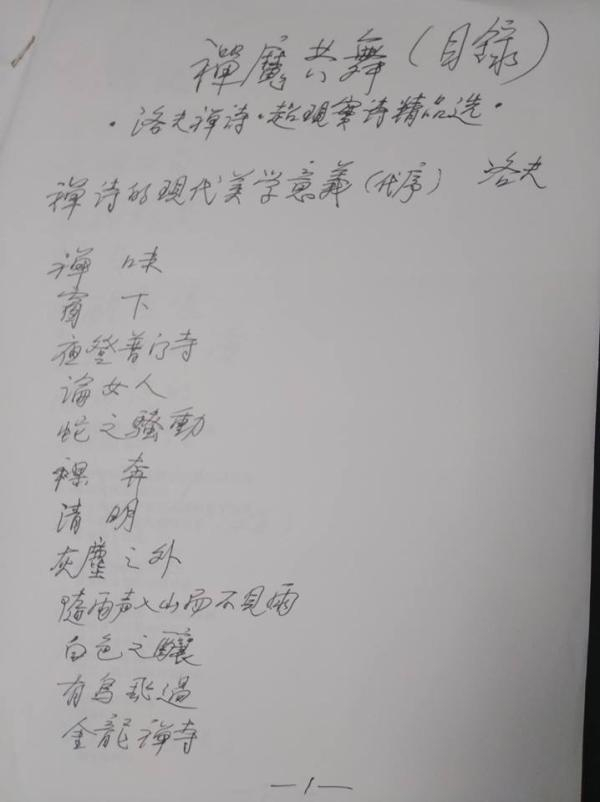 禪魔共舞(目錄)
·洛夫禅诗·超現实诗精品选·
禅诗的現代美学意義(代序) 洛夫
禅 味
窗 下
夜登普门寺
论女人
蛇之騷動
裸 奔
清 明
灰塵之外
隨雨声入山而不見雨
白色之釀
有鳥飛過
金龍禅寺
—1—